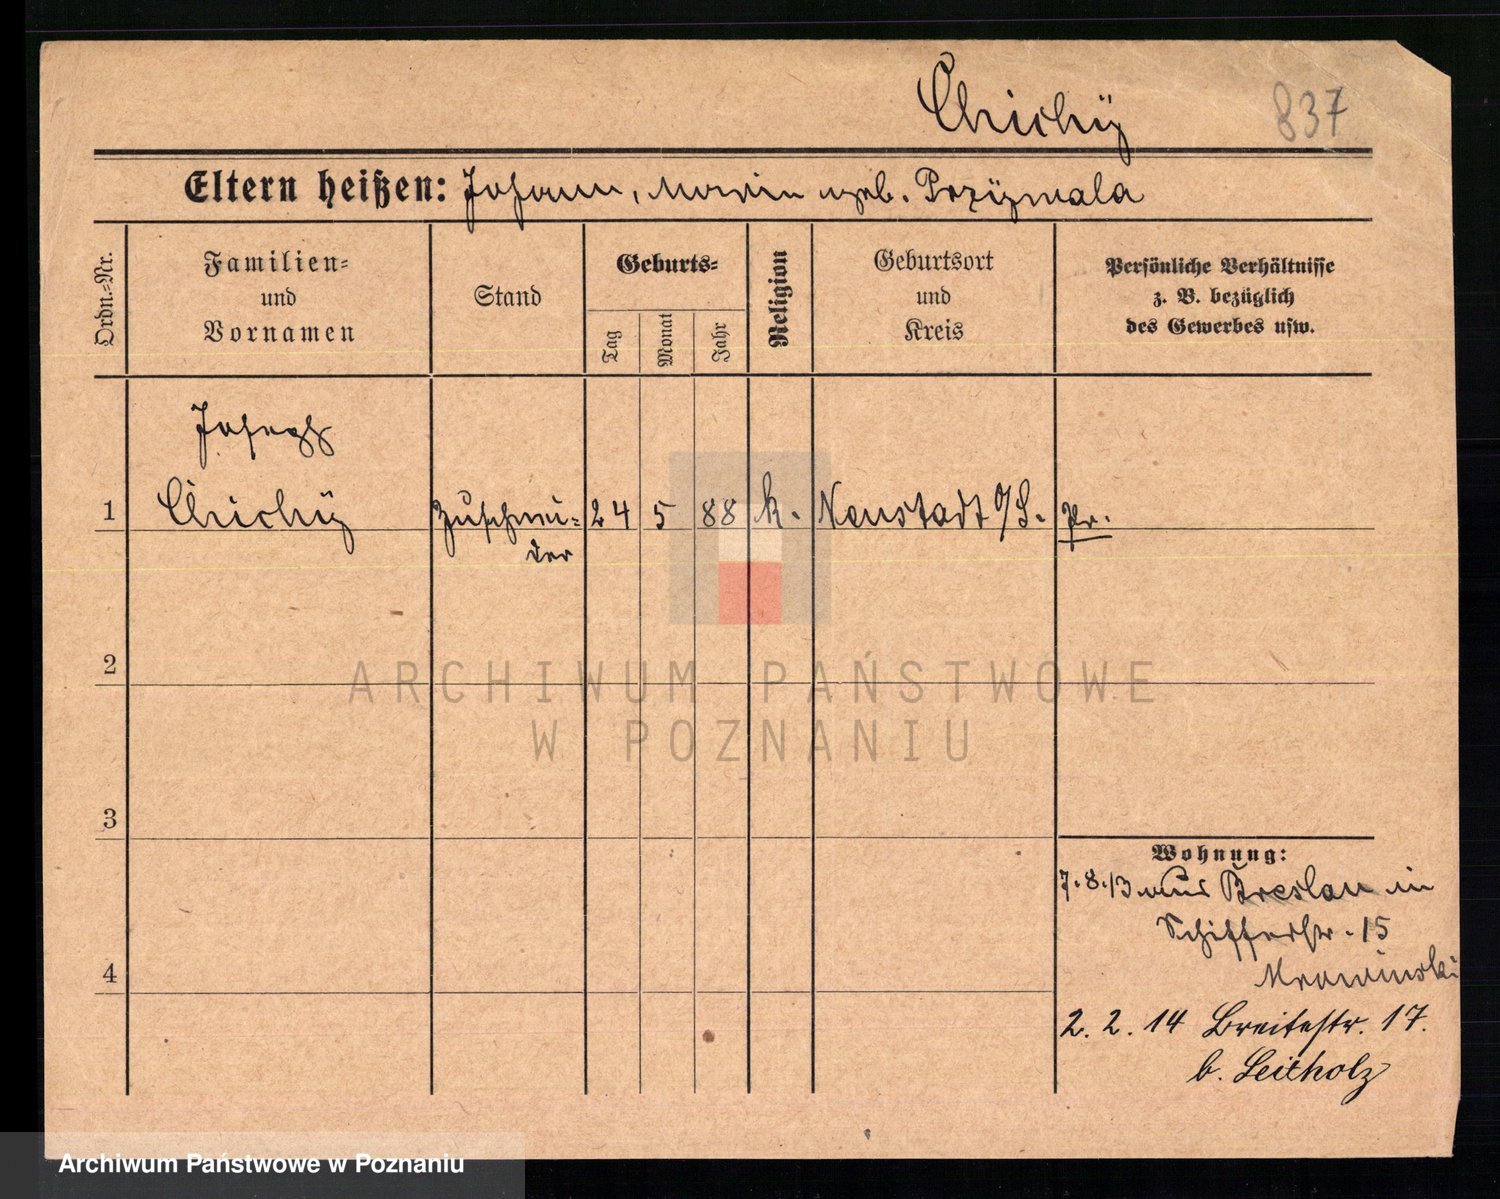 Chichÿ 837
Eltern heißen: Johann, Maria geb. Przÿmala
Ordn.-Nr.
Familien-
und
Vornamen
Stand
Geburts-
Tag
Monat
Jahr
Religion
Geburtsort
und
Kreis
Persönliche Verhältnisse
z. B. bezüglich
des Gewerbes usw.
Joseph
1 Chichÿ Zuschnei- 24 5 88 k. Neustadt O/S. Pr.
der
2
3
4
Wohnung:
7.8.13 aus Breslau in
Schifferstr. 15
Mrowinski
2. 2. 14 Breitestr. 17.
b. Leitholz
ARCHIWUM PAŃSTWOWE
W POZNANIU
Archiwum Państwowe w Poznaniu